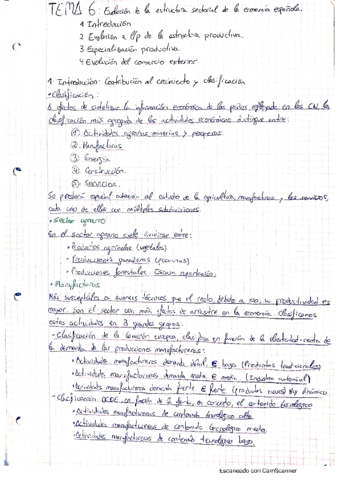 TEMA 6: Evolución de la estructura sectorial de la economía española.
1 Introducción
2 Evolución a l/p de la estructura productiva.
3 Especialización productiva.
4 Evolución del comercio exterior
1. Introducción: Contribución al crecimiento y clasificación
• Clasificación:
A efectos de sintetizar la información económica de los países en las CN, la
clasificación más agregada de las actividades económicas distingue entre:
① Actividades agrarias, mineras y pesqueras.
② Manufacturas
③ Energía
④ Construcción
⑤ Servicios.
Se prestará especial atención al estudio de la agricultura, manufacturas y los servicios,
cada uno de ellos con múltiples subdivisiones.
• Sector agrario
En el sector agrario suele entre:
• Productos agrícolas (vegetales)
• Producciones ganaderas (pecuarias)
• Producciones forestales.
• Manufacturas
Más susceptibles a avances técnicos que el resto, debido a eso, su productividad es
mayor. Son el sector con más efectos de arrastre en la economía. Clasificamos
estas actividades en 3 grandes grupos:
- Clasificación de la Comisión europea, clasifica en función de la elasticidad-renta de
la demanda de las producciones manufactureras:
• Actividades manufactureras demanda débil E baja (Productos tradicionales)
• Actividades manufactureras demanda media E media
• Actividades manufactureras demanda fuerte E fuerte (productos nuevos) Muy dinámico
- Clasificación OCDE en función de la oferta, en concreto, el contenido tecnológico
• Actividades manufactureras de contenido tecnológico alto
• Actividades manufactureras de contenido tecnológico medio.
• Actividades manufactureras de contenido tecnológico bajo.
Escaneado con CamScanner